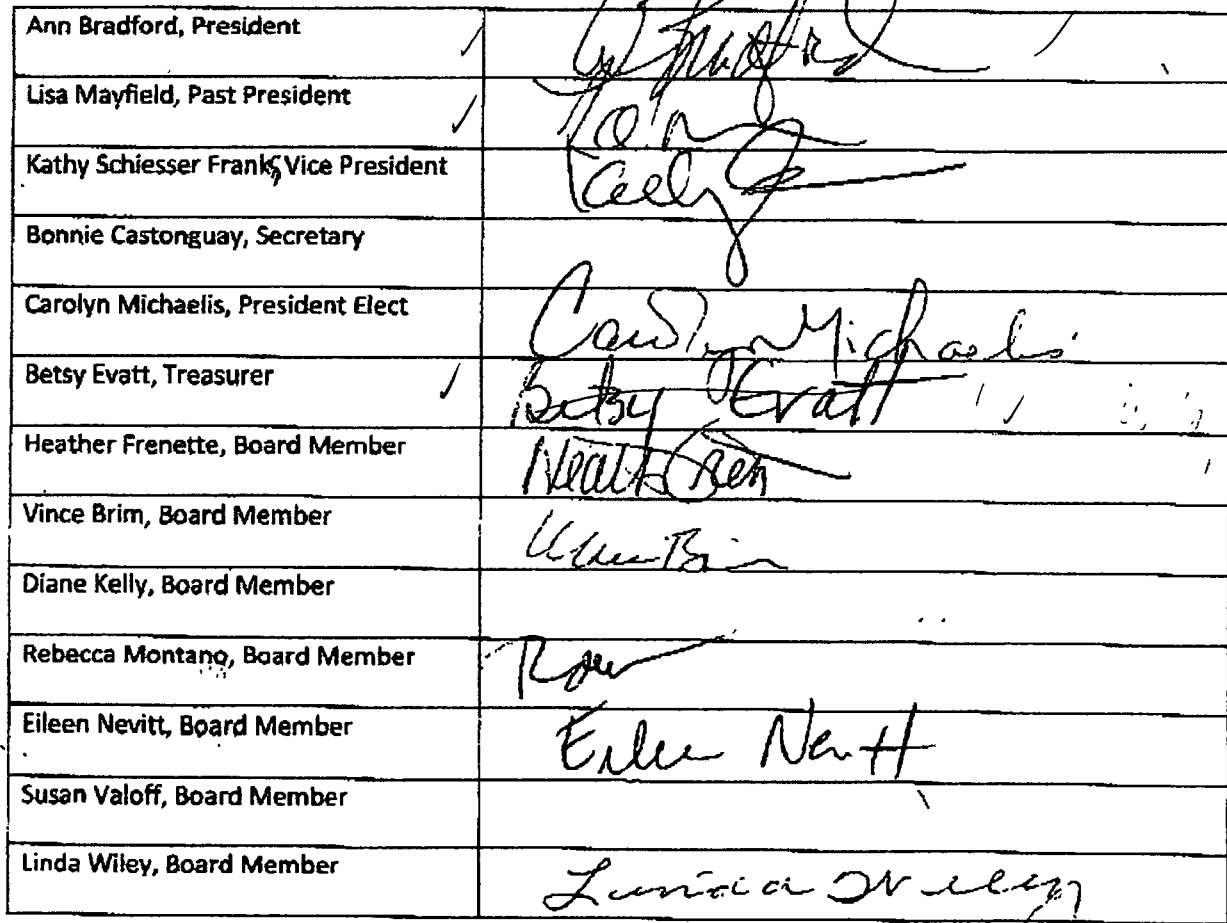 Ann Bradford, President
Lisa Mayfield, Past President
Kathy Schiesser Franks, Vice President
Bonnie Castonguay, Secretary
Carolyn Michaelis, President Elect
Carolyn Michaelis
Betsy Evatt, Treasurer
Betsy Evatt
Heather Frenette, Board Member
Vince Brim, Board Member
Diane Kelly, Board Member
Rebecca Montano, Board Member
Eileen Nevitt, Board Member
Eileen Nevitt
Susan Valoff, Board Member
Linda Wiley, Board Member
Linda Wiley